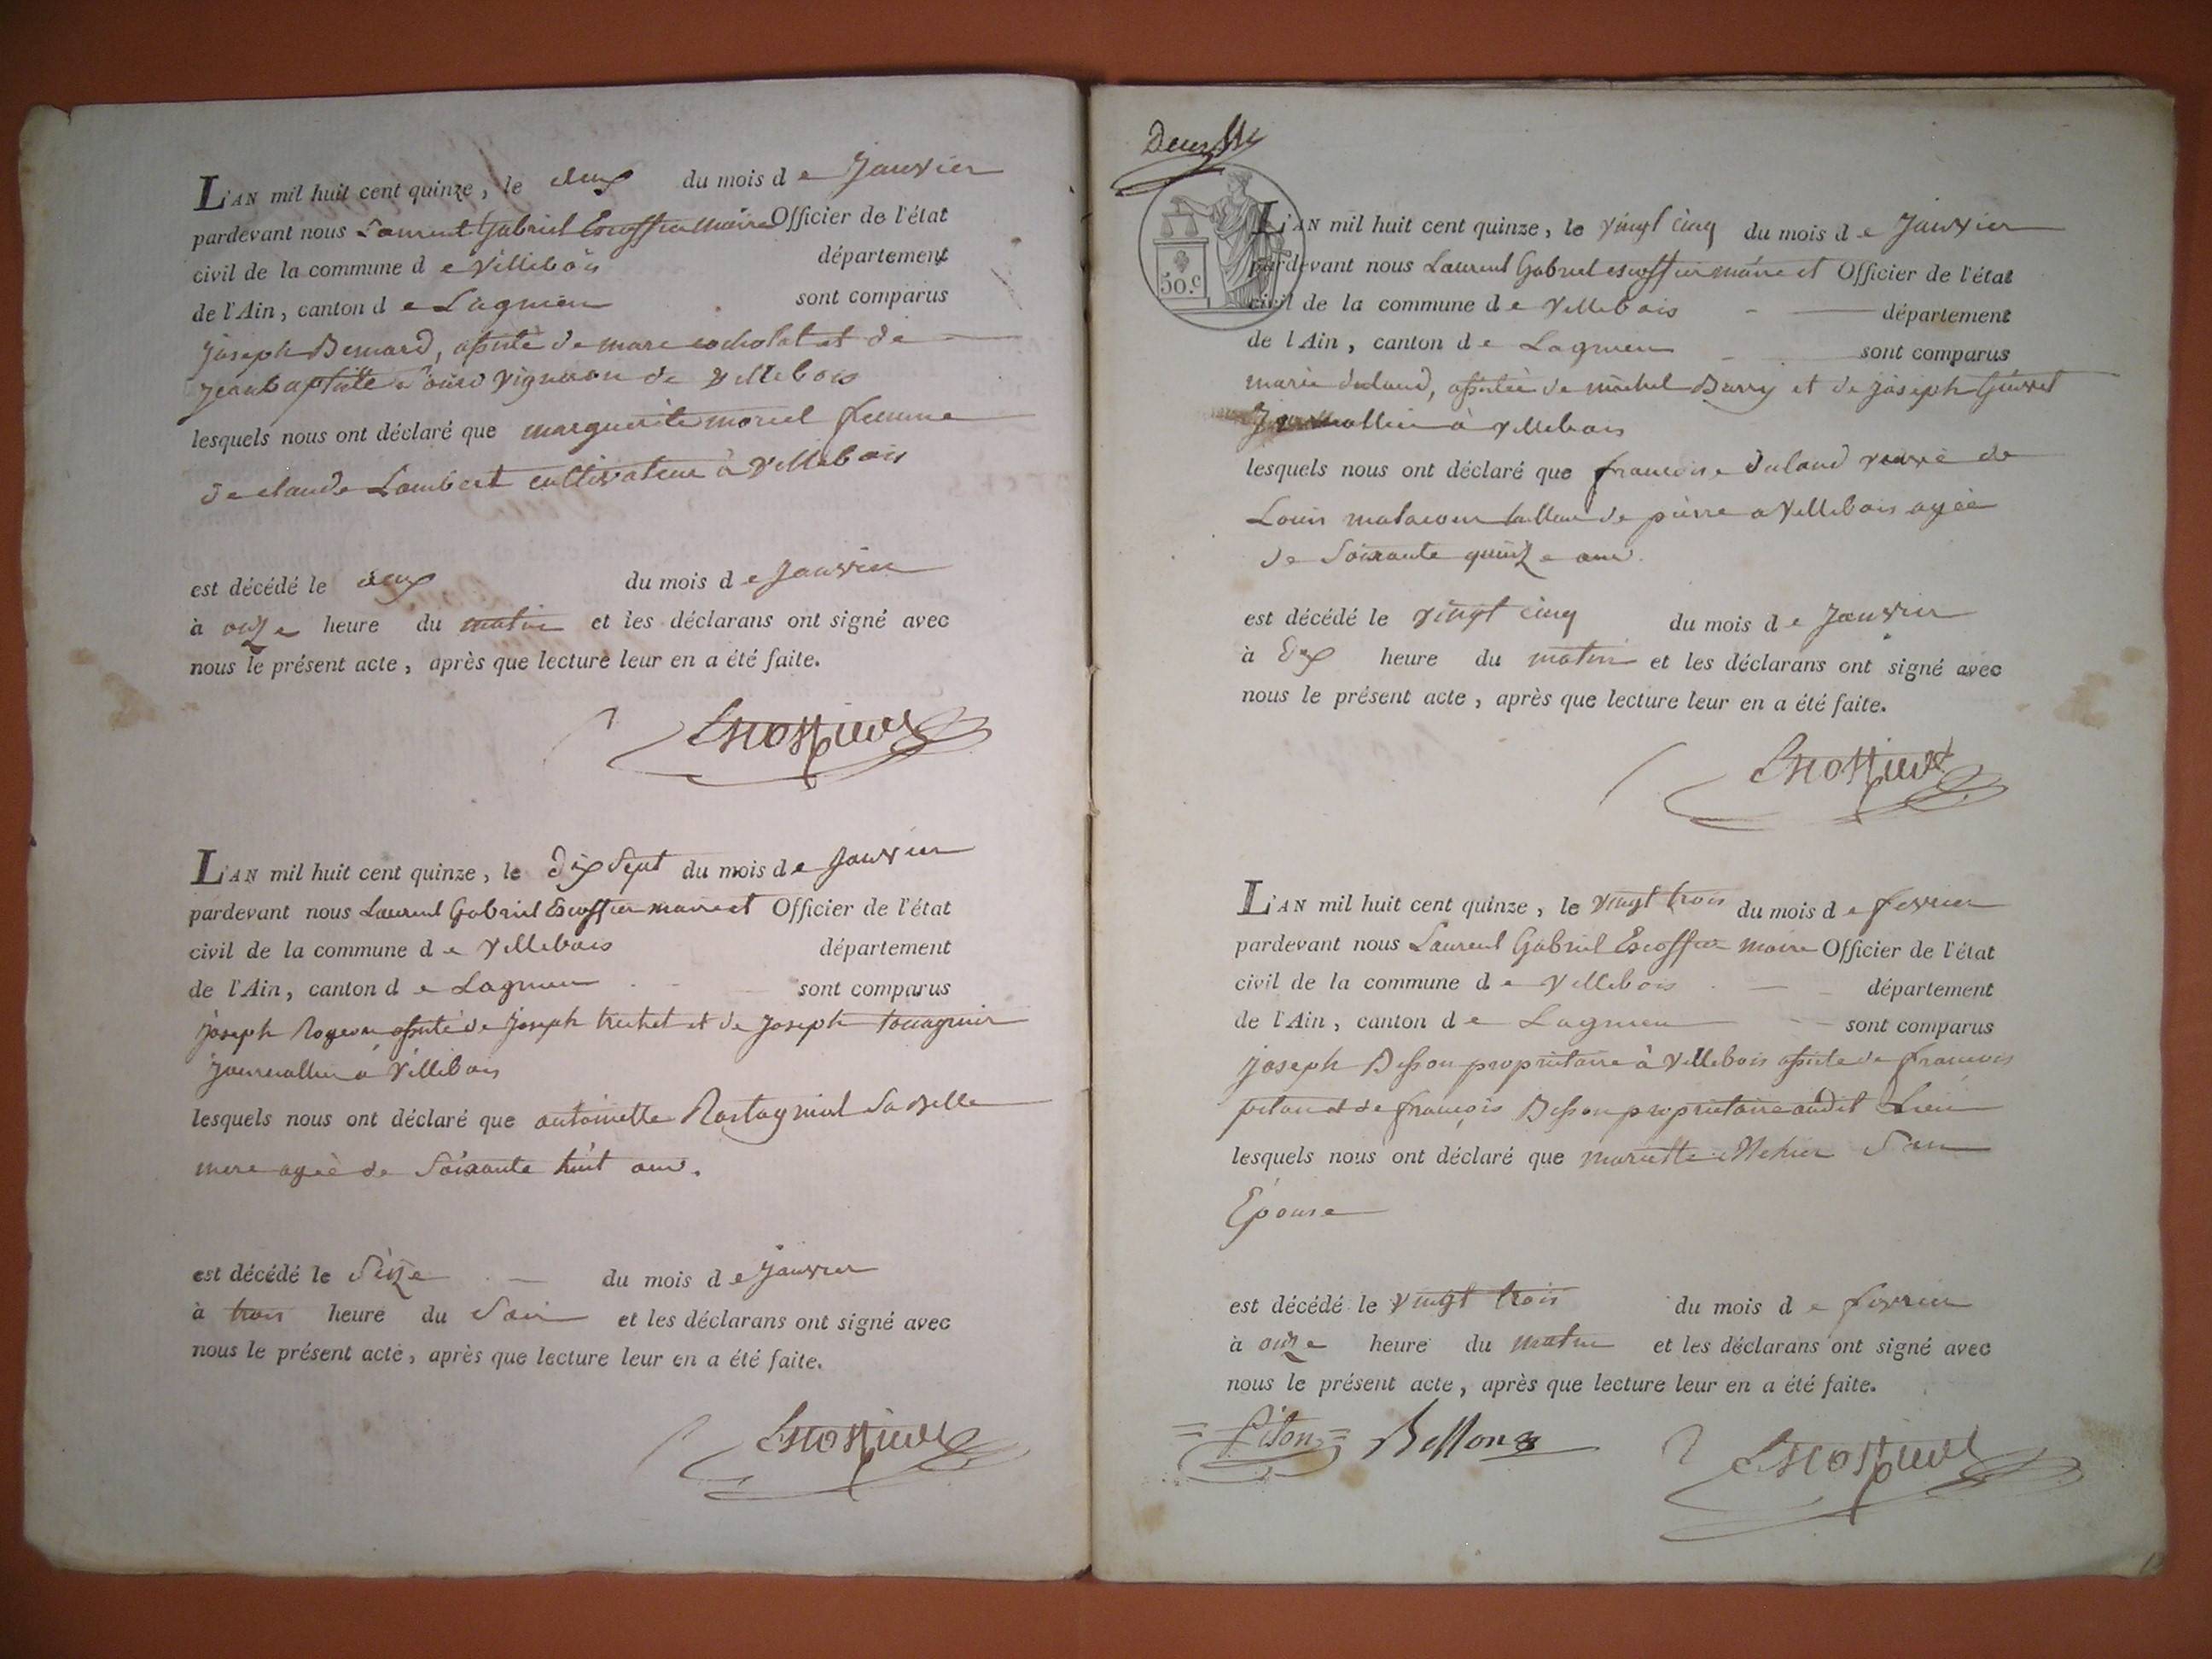 L'AN mil huit cent quinze, le deux du mois de Janvier
pardevant nous Laurent Gabriel Escoffier Maire Officier de l'état
civil de la commune de Villebois département
de l'Ain, canton de Lagnieu sont comparus
joseph Bernard, assisté de marc et de
jean baptiste vigneron de Villebois
lesquels nous ont déclaré que marguerite morel femme
de claude Lambert cultivateur à Villebois
est décédé le deux du mois de Janvier
à onze heure du matin et les déclarans ont signé avec
nous le présent acte, après que lecture leur en a été faite.
Escoffier
L'AN mil huit cent quinze, le dix Sept du mois de Janvier
pardevant nous Laurent Gabriel Escoffier maire et Officier de l'état
civil de la commune de Villebois département
de l'Ain, canton de Lagnieu sont comparus
joseph assisté de joseph trichet et de joseph
journallier à Villebois
lesquels nous ont déclaré que antoinette Sa belle
mere agée de Soixante huit ans.
est décédé le Seize du mois de janvier
à trois heure du Soir et les déclarans ont signé avec
nous le présent acte, après que lecture leur en a été faite.
Escoffier
50.c
L'AN mil huit cent quinze, le vingt cinq du mois de Janvier
pardevant nous Laurent Gabriel escoffier maire et Officier de l'état
civil de la commune de Villebois département
de l'Ain, canton de Lagnieu sont comparus
marie duland, assistée de michel Barry et de joseph
à Villebois
lesquels nous ont déclaré que francoise duland veuve de
Louis de pierre a Villebois agée
de Soixante quinze ans.
est décédé le vingt cinq du mois de Janvier
à dix heure du matin et les déclarans ont signé avec
nous le présent acte, après que lecture leur en a été faite.
Escoffier
L'AN mil huit cent quinze, le vingt trois du mois de fevrier
pardevant nous Laurent Gabriel Escoffier maire Officier de l'état
civil de la commune de Villebois département
de l'Ain, canton de Lagnieu sont comparus
joseph Besson proprietaire à Villebois assisté de francois
piton et de françois Besson proprietaire audit Lieu
lesquels nous ont déclaré que mariette Son
Epouse
est décédé le vingt trois du mois de fevrier
à onze heure du matin et les déclarans ont signé avec
nous le présent acte, après que lecture leur en a été faite.
Piton Besson Escoffier